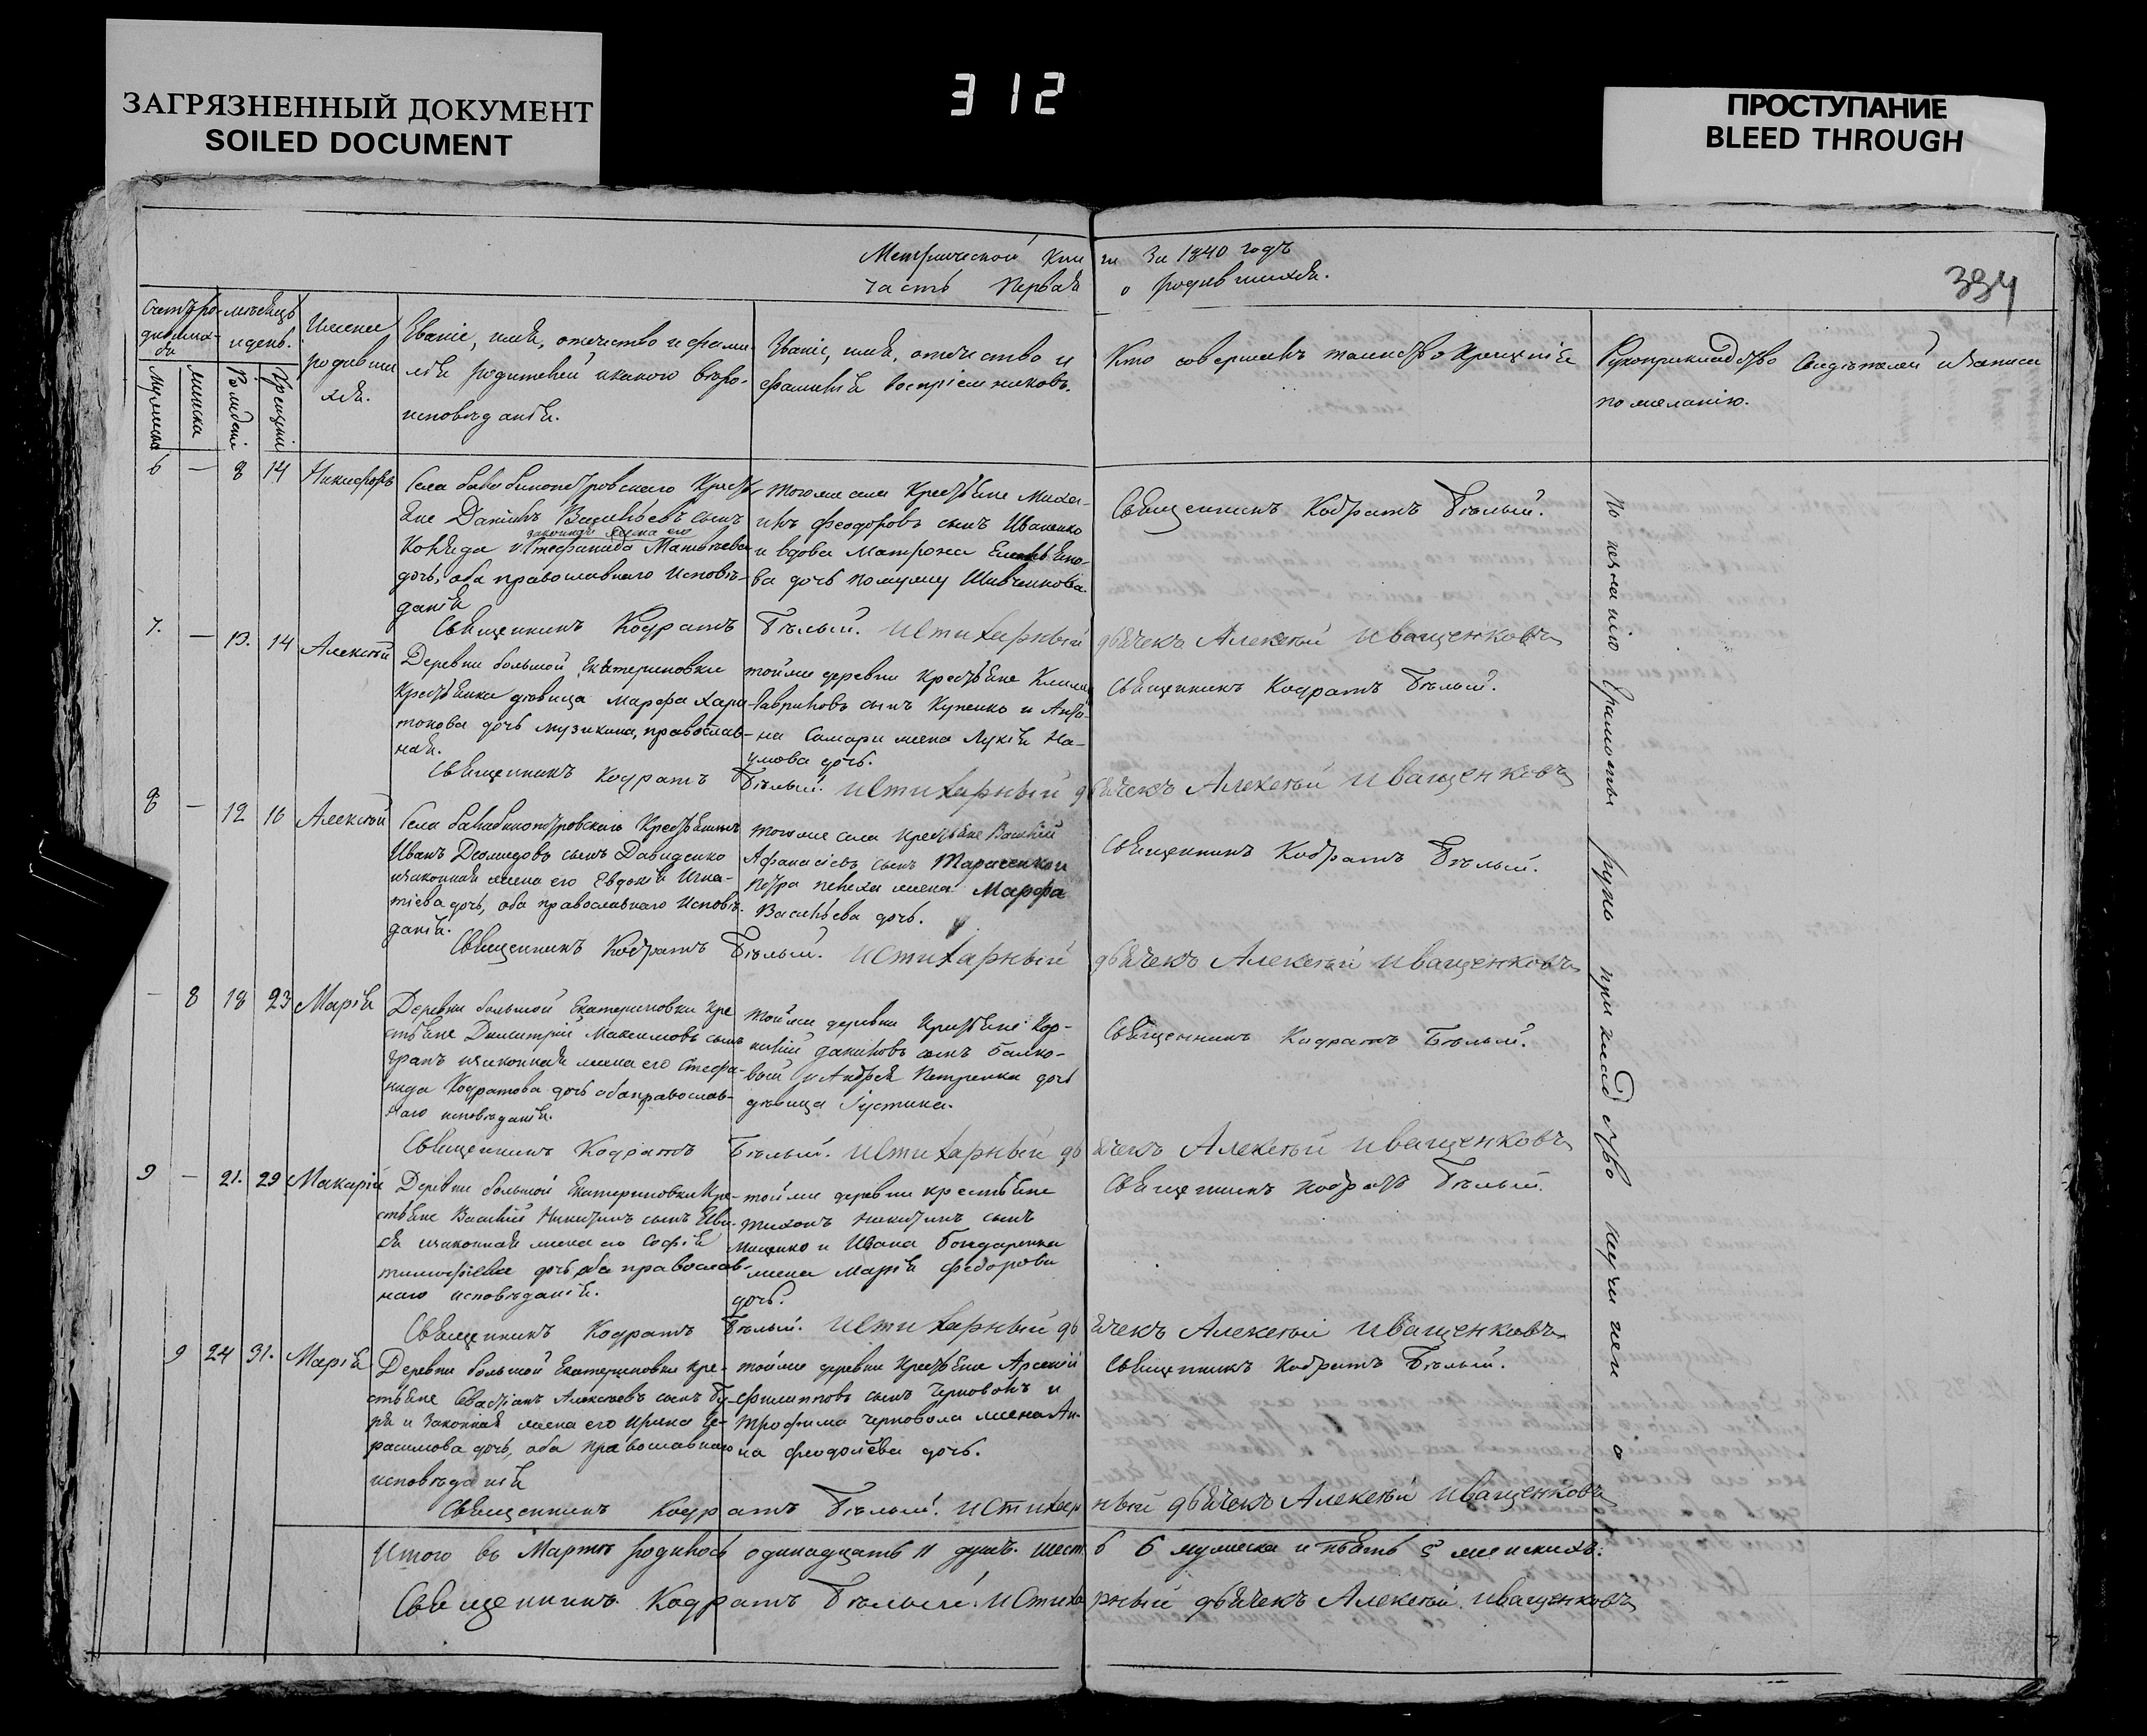 ЗАГРЯЗНЕННЫЙ ДОКУМЕНТ
SOILED DOCUMENT
312
ПРОСТУПАНИЕ
BLEED THROUGH
Метрической книги за 1840 годъ
часть первая о родившихся.
334
Счетъ ро-
дивших-
ся
мѣсяцъ
и день.
Имена
родивши
хся.
Званіе, имя, отечество и фами-
лія родителей и какого вѣро-
исповѣданія.
Званіе, имя, отечество и
фамилія воспріемниковъ.
Кто совершалъ таинство крещенія
Рукоприкладство свидѣтелей и записи
по желанію.
мужеска
женска
Рожденія
Крещенія
6 — 8 14 Никифоръ
Села крестья-
яне Даніилъ Васильевъ сынъ
законная жена его
и Стефанида Матвѣева
дочь, оба православнаго исповѣ-
данія
Тогоже села крестьяне Миха-
илъ Феодоровъ сынъ Иваненко
и вдова Матрона
ва дочь по мужу Шевченкова.
Священникъ Кодратъ Бѣлый.
Священникъ Кодратъ Бѣлый. и стихарный дьячекъ Алексѣй Иващенковъ
7. — 13. 14 Алексѣй
Деревни большой Екатериновки
крестьянка дѣвица Марфа Хари-
тонова дочь, православ-
ная.
тойже деревни крестьяне Климъ
Гавриловъ сынъ и Анто-
на Самари жена Лукія На-
умова дочь.
Священникъ Кодратъ Бѣлый.
Священникъ Кодратъ Бѣлый. и стихарный дьячекъ Алексѣй Иващенковъ
8 — 12 16 Алексѣй
Села крестьянинъ
Иванъ Діомидовъ сынъ Давиденко
и законная жена его Евдокія Игна-
тіева дочь, оба православнаго исповѣ-
данія.
тогоже села крестьяне Василій
Афанасіевъ сынъ Тарасенко и
Петра жена Марфа
Васильева дочь.
Священникъ Кодратъ Бѣлый.
Священникъ Кодратъ Бѣлый. и стихарный дьячекъ Алексѣй Иващенковъ
— 8 18 23 Марія
Деревни большой Екатериновки кре
стьяне Димитрій Максимовъ сынъ
и законная жена его Стефа-
нида Кодратова дочь оба православ-
наго исповѣданія.
тойже деревни крестьяне Кор-
нилій Даниловъ сынъ
и Андрея Петренка дочь
дѣвица Іустина.
Священникъ Кодратъ Бѣлый.
Священникъ Кодратъ Бѣлый. и стихарный дьячекъ Алексѣй Иващенковъ
9 — 21. 29 Макарій
Деревни большой Екатериновки кре-
стьяне Василій Никитинъ сынъ
и законная жена его Софія
Тимофіева дочь, оба православ-
наго исповѣданія.
тойже деревни крестьяне
Тихонъ Никитинъ сынъ
и Ивана Бондаренка
жена Марія Федорова
дочь.
Священникъ Кодратъ Бѣлый.
Священникъ Кодратъ Бѣлый. и стихарный дьячекъ Алексѣй Иващенковъ
9 24 31. Марія
Деревни большой Екатериновки кре-
стьяне Севастіанъ Алексѣевъ сынъ
и законная жена его Ирина Ге-
расимова дочь, оба православнаго
исповѣданія
тойже деревни крестьяне Арсеній
Филипповъ сынъ Черноволъ и
Трофима Черновола жена Ан-
на дочь.
Священникъ Кодратъ Бѣлый.
Священникъ Кодратъ Бѣлый. и стихарный дьячекъ Алексѣй Иващенковъ
По незнанію грамоты рукоприкладство неучинено
Итого въ Мартѣ родилось одинадцать 11 душъ. шесть 6 мужеска и пять 5 женскихъ.
Священникъ Кодратъ Бѣлый. и стихарный дьячекъ Алексѣй Иващенковъ